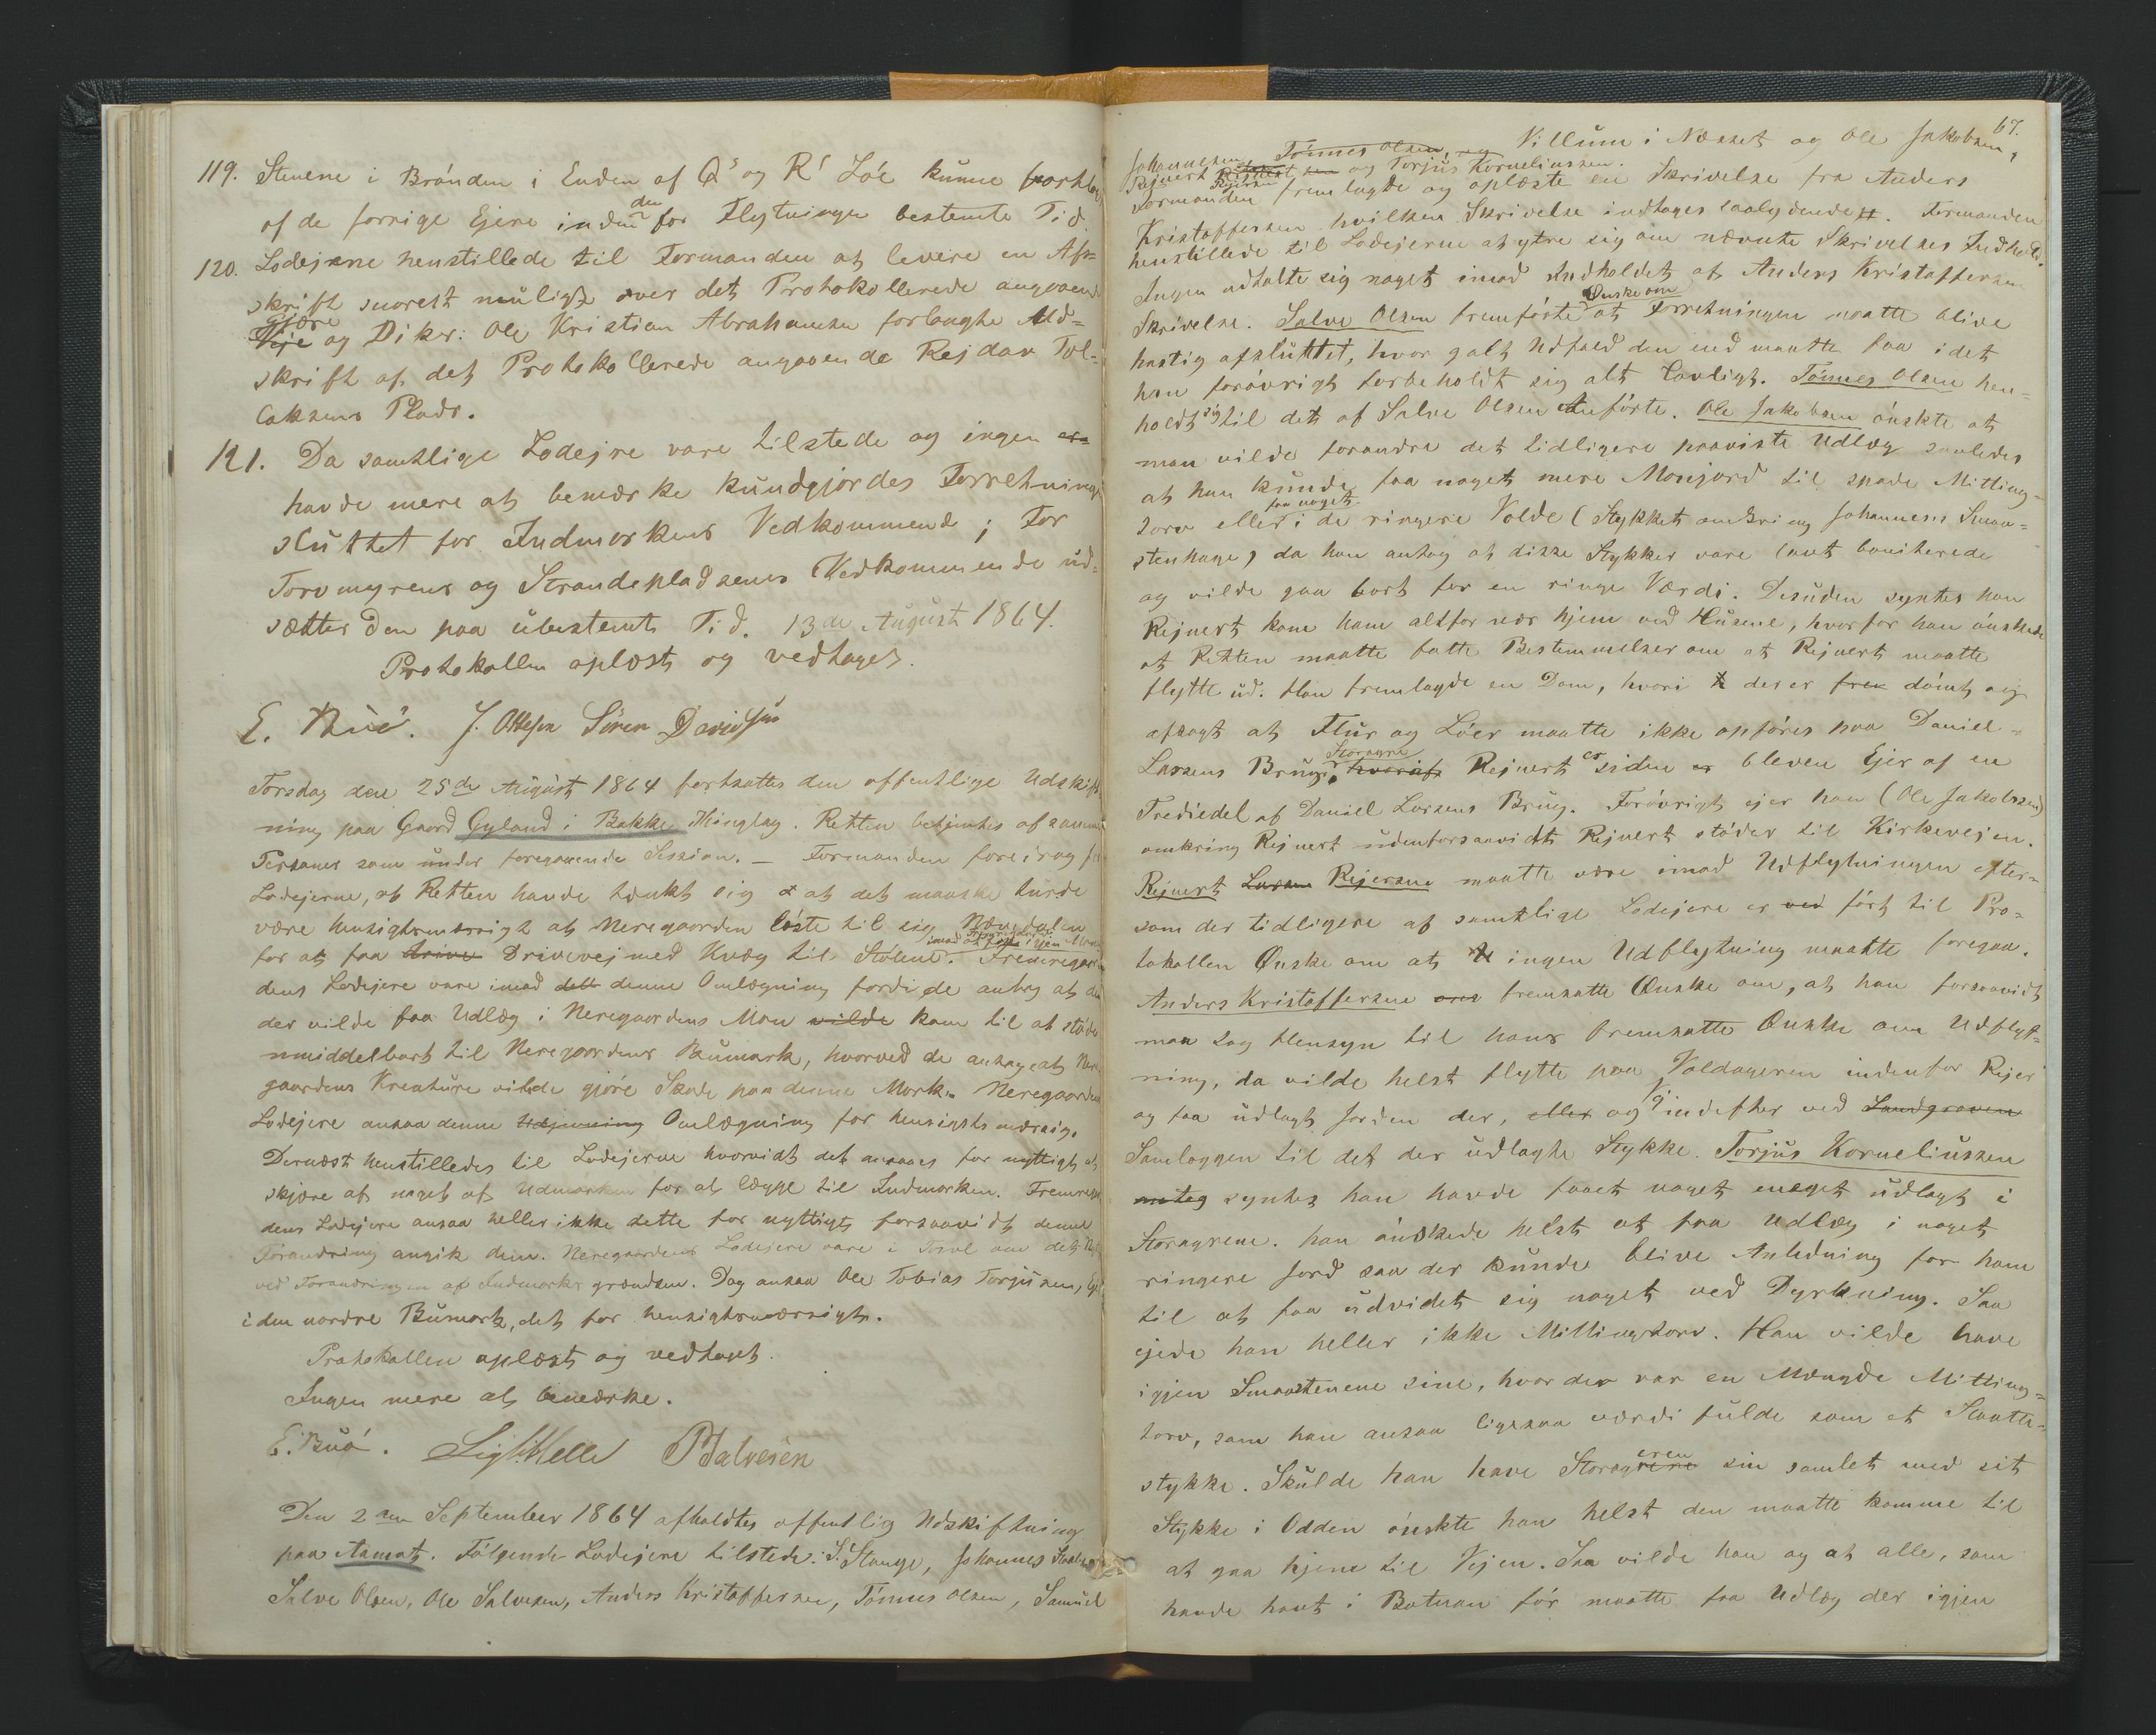 119. Stenene i Brønden i Enden af Q's og R' Løe kunne borttag
af de forrige Ejere inden den for Flytningen bestemte Tid.
120. Lodejerne henstillede til Formanden at levere en Af-
skrift snarest muligt over det Protokollerede angaaende
Veje Gjære og Diker: Ole Kristian Abrahamsen forlangte Ud-
skrift af det Protokollerede angaaende Rejdar Tol-
laksens Plads.
121. Da samtlige Lodejere vare tilstede og ingen
havde mere at bemærke kundgjordes Forretning
sluttet for Indmarkens Vedkommende; For
Torvmyrens og Strandepladsenes Vedkommende ud-
sættes den paa ubestemt Tid. 13de August 1864.
Protokollen oplæst og vedtaget.
E. Bue. J. Ottesen Sören Davidsen
Torsdag den 25de August 1864 fortsattes den offentlige Udskift-
ning paa Gaard Gyland i Bakke Thinglag. Retten betjentes af samme
Personer som under foregaaende Session. — Formanden foredrog for
Lodejerne, at Retten havde tænkt sig at det maaske turde
være hensigtsmæssigt at Neregaarden løste til sig
for at faa drive Drivevej med Kvæg til Stølene. Fremregaar
dens Lodejere vare imod dett denne Omlægning fordi de antog at de
der vilde faa Udlæg i Neregaardens Mon vilde kom til at støde
umiddelbart til Neregaardens Bumark, hvorved de antog at Nere
gaardens Kreature vilde gjøre Skade paa denne Mark. Neregaarden
Lodejere ansaa denne Udjevning Omlægning for hensigtsmæssig.
Dernæst henstilledes til Lodejerne hvorvidt det ansaaes for nyttigt at
skjære af noget af Udmarken for at lægge til Indmarken. Fremregaar
dens Lodejere ansaa heller ikke dette for nyttigt forsaavidt denne
Forandring angik dem. Neregaardens Lodejere vare i Tvivl om det
ved Forandringen af Indmarks grændsen. Dog ansaa Ole Tobias Torjusen,
i den nordre Bumark, det for hensigtsmæssigt.
Protokollen oplæst og vedtaget.
Ingen mere at bemærke.
E. Bue. Sigb. Helle P Salvesen
Den 2den September 1864 afholdtes offentlig Udskiftning
paa Aamot. Følgende Lodejere tilstede: S. Stange, Johannes
Salve Olsen, Ole Salvesen, Anders Kristoffersen, Tønnes Olsen, Samuel
67.
Johannesen, Tønnes Olsen, og Villum i Næsset og Ole Jakobsen,
Rejnert Rejersen og Torjus Korneliussen.
Formanden fremlagde og oplæste en Skrivelse fra Anders
Kristoffersen hvilken Skrivelse indtages saalydende. Formanden
henstillede til Lodejerne at ytre sig om nævnte Skrivelses Indhold.
Ingen udtalte sig noget imod Indholdet af Anders Kristoffersens
Skrivelse. Salve Olsen fremførte Ønske om at Forretningen maatte blive
hastig afsluttet, hvor galt Udfald den end maatte faa idet
han forøvrigt forbeholdt sig alt Lovligt. Tønnes Olsen hen-
holdt sig til det af Salve Olsen Anførte. Ole Jakobsen ønskte at
man vilde forandre det tidligere paaviste Udlæg saaledes
at han kunde faa noget mere Monjord til spade Mitting-
torv eller faa noget i de ringere Volde (Stykket omkring Johannesens Smaa-
stenhage) da han antog at disse Stykker vare lavt boniterede
og vilde gaa bort for en ringe Værdi. Desuden syntes han
Rejnert kom ham altfor nær hjem ved Husene, hvorfor han ønskede
at Retten maatte fatte Bestemmelser om at Rejnert maatte
flytte ud. Han fremlagde en Dom, hvori der er frem dømt og
afsagt at Flur og Løer maatte ikke opføres paa Daniel
Larsens Brug, hvoraf Storagre Rejnert er siden er bleven Ejer af en
Trediedel af Daniel Larsens Brug. Forøvrigt ejer han (Ole Jakobsen)
omkring Rejnert udenforsaavidt Rejnert støder til Kirkevejen.
Rejnert Larsen Rejersen maatte være imod Udflytningen efter-
som der tidligere af samtlige Lodejere er ved ført til Pro-
tokollen Ønske om at ingen Udflytning maatte foregaa.
Anders Kristoffersen fremsatte Ønske om, at han forsaavidt
man tog Hensyn til hans fremsatte Ønske om Udflyt-
ning, da vilde helst flytte paa Voldageren indenfor Rejer
og faa udlagt Jorden der, eller og indefter ved Landgraven
Samloggen til det der udlagte Stykke. Torjus Korneliussen
syntes han havde faaet noget meget udlagt i
Storagrene. han ønskede helst at faa Udlæg i noget
ringere Jord saa der kunde blive Anledning for ham
til at faa udvidet sig noget ved Dyrkning. Saa
ejede han heller ikke Mittingtorv. Han vilde have
igjen Smaastenene sine, hvor der var en Mængde Mitting-
torv, som han ansaa ligesaa værdifulde som et Slaatte-
stykke. Skulde han have Storagrene eren sin samlet med sit
Stykke i Odden ønskte han helst den maatte komme til
at gaa hjem til Vejen. Saa vilde han og at alle, som
havde havt i Botnan før maatte faa Udlæg der igjen